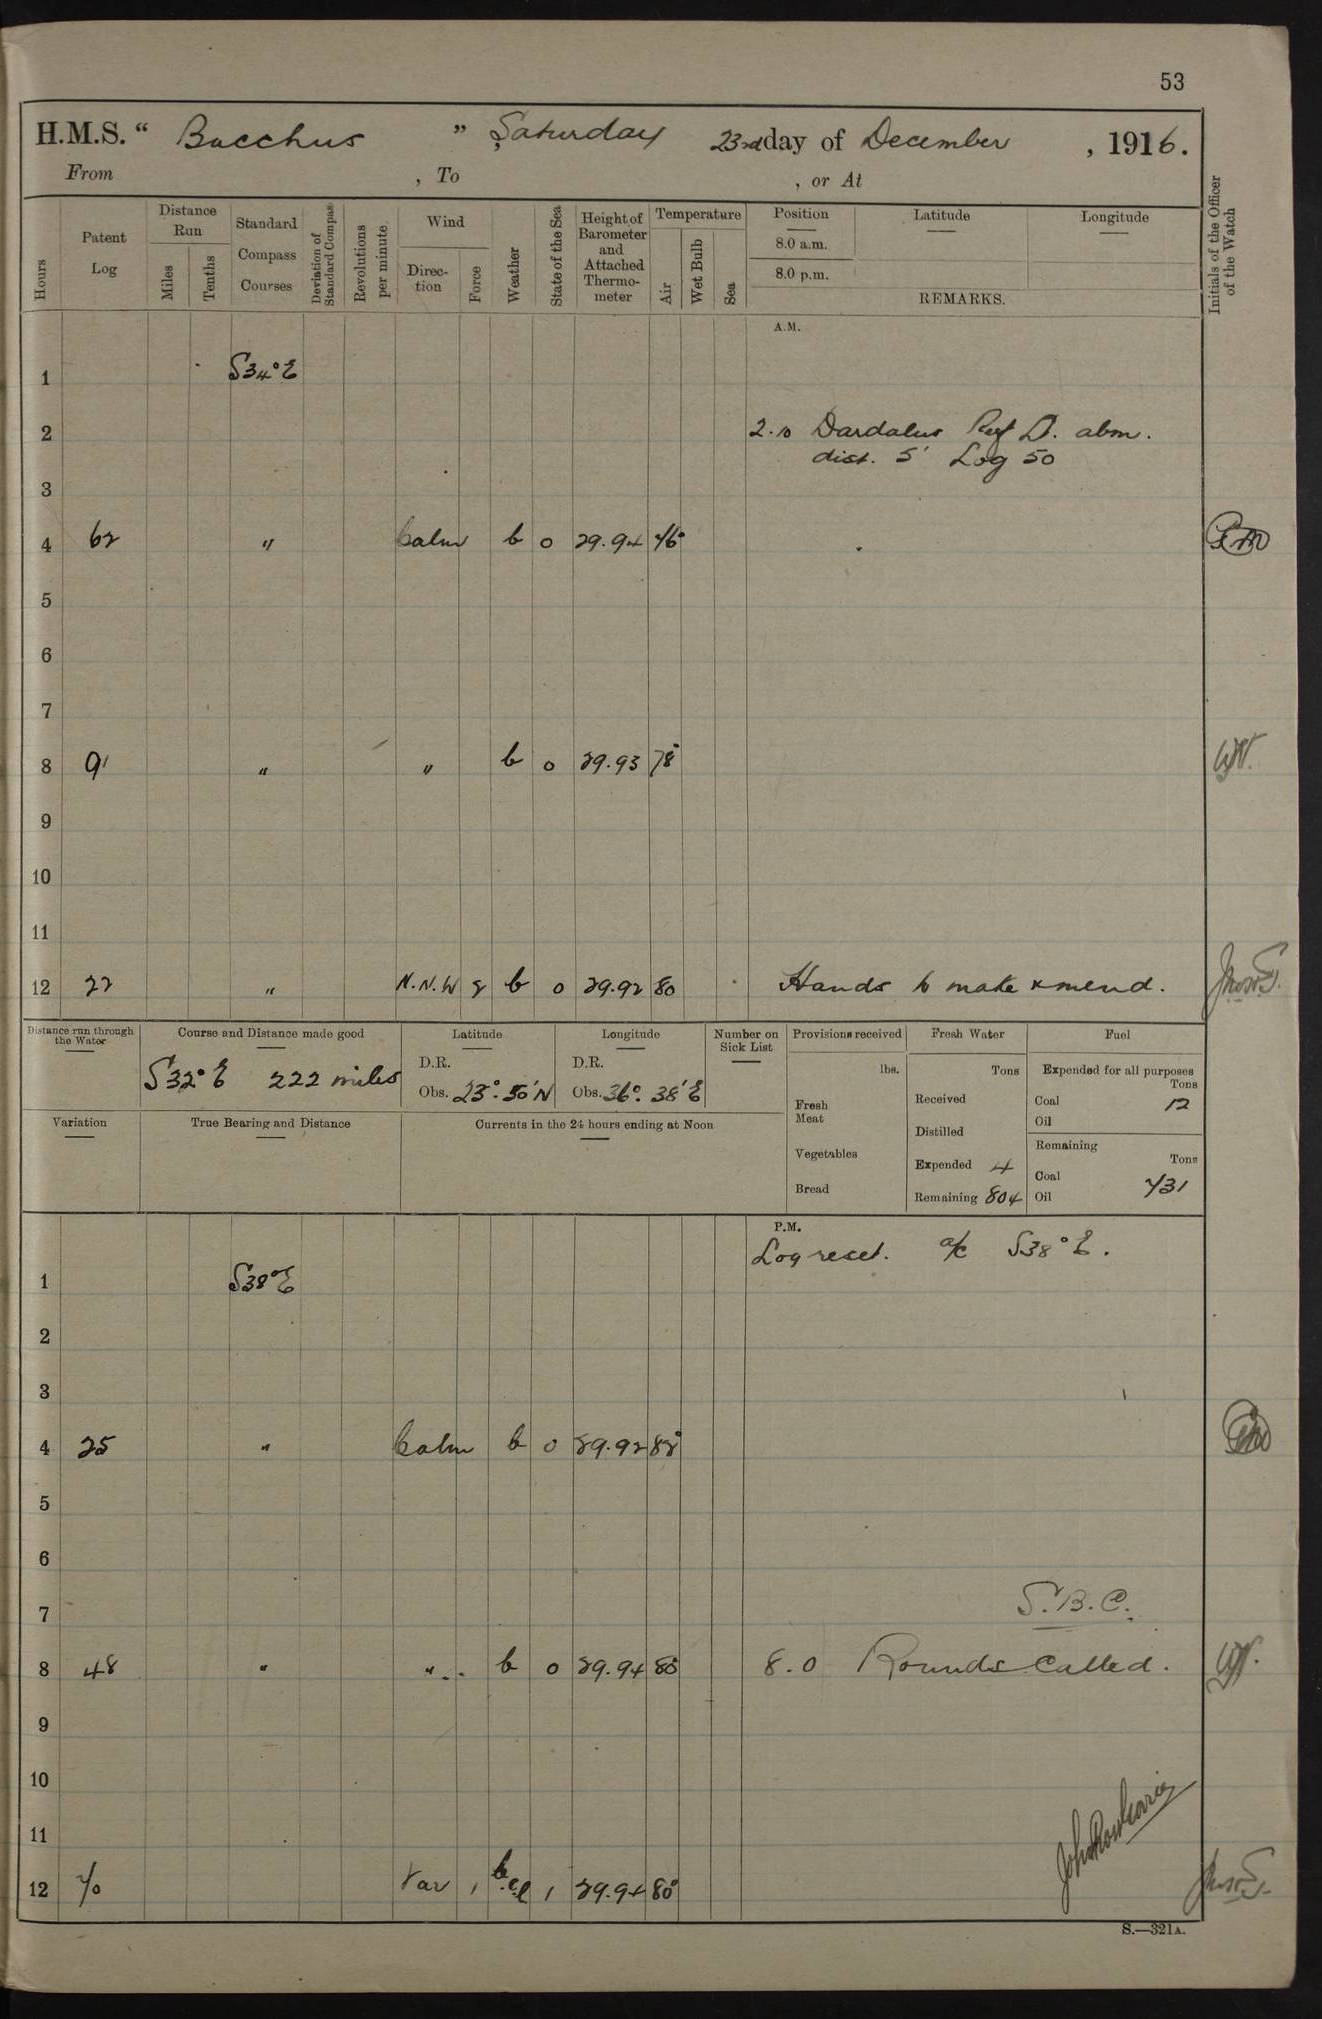 53
H.M.S. “ Bacchus ” Saturday 23rd day of December , 1916.
From , To , or At
Hours
Patent Log
Distance Run
Miles
Tenths
Standard Compass Courses
Deviation of Standard Compass
Revolutions per minute
Wind
Direction
Force
Weather
State of the Sea
Height of Barometer and Attached Thermometer
Temperature
Air
Wet Bulb
Sea
Position
8.0 a.m.
8.0 p.m.
Latitude
Longitude
REMARKS.
Initials of the Officer of the Watch
A.M.
1 S34°E
2 2.10 Dardalus Reef Lt. abm.
dist. 5' Log 50
3
4 62 " Calm b 0 29.94 76°
5
6
7
8 91 " " b 0 29.93 78°
9
10
11
12 22 " N.N.W 2 b 0 29.92 80 Hands to make & mend.
Distance run through the Water
Course and Distance made good
S32°E 222 miles
Latitude
D.R.
Obs. 23°.50'N
Longitude
D.R.
Obs. 36°. 38'E
Number on Sick List
Provisions received
lbs.
Fresh Meat
Vegetables
Bread
Fresh Water
Tons
Received
Distilled
Expended 4
Remaining 804
Fuel
Expended for all purposes
Tons
Coal 12
Oil
Remaining
Tons
Coal 731
Oil
Variation
True Bearing and Distance
Currents in the 24 hours ending at Noon
P.M.
Log reset. a/c S38°E.
1 S38°E
2
3
4 25 " Calm b 0 29.92 82°
5
6
7 S.B.C.
8 48 " " b 0 29.94 80° 8.0 Rounds Called.
9
10
11
12 70 Var 1 b.c.l 1 29.94 80°
S.—321A.